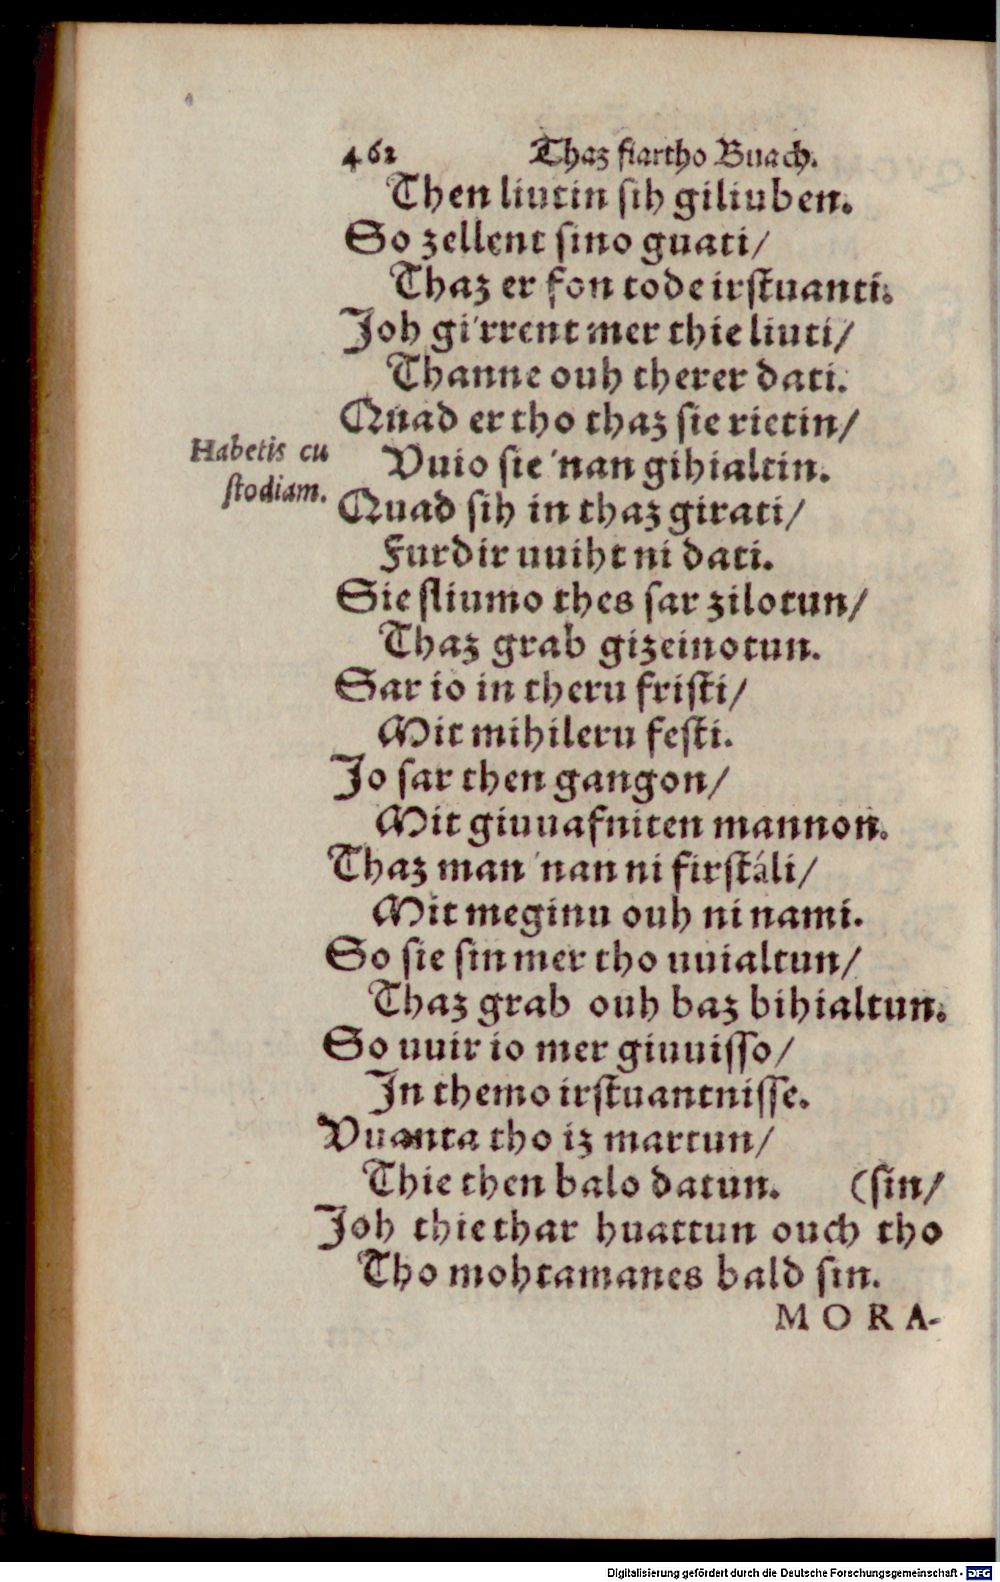 462 Thaz fiartho Buach.
Then liutin sih giliuben.
So zellent sino guati/
Thaz er fon tode irstuanti.
Joh gi'rrent mer thie liuti/
Thanne ouh therer dati.
Quad er tho thaz sie rietin/
Habetis cu
Vuio sie 'nan gihialtin.
stodiam.
Quad sih in thaz girati/
Furdir uuiht ni dati.
Sie sliumo thes sar zilotun/
Thaz grab gizeinotun.
Sar io in theru fristi/
Mit mihileru festi.
Jo sar then gangon/
Mit giuuafniten mannon.
Thaz man 'nan ni firstáli/
Mit meginu ouh ni nami.
So sie sin mer tho uuialtun/
Thaz grab ouh baz bihialtun.
So uuir io mer giuuisso/
In themo irstuantnisse.
Vuanta tho iz martun/
Thie then balo datun. (sin/
Joh thie thar huattun ouch tho
Tho mohtamanes bald sin.
MORA-
Digitalisierung gefördert durch die Deutsche Forschungsgemeinschaft - DFG